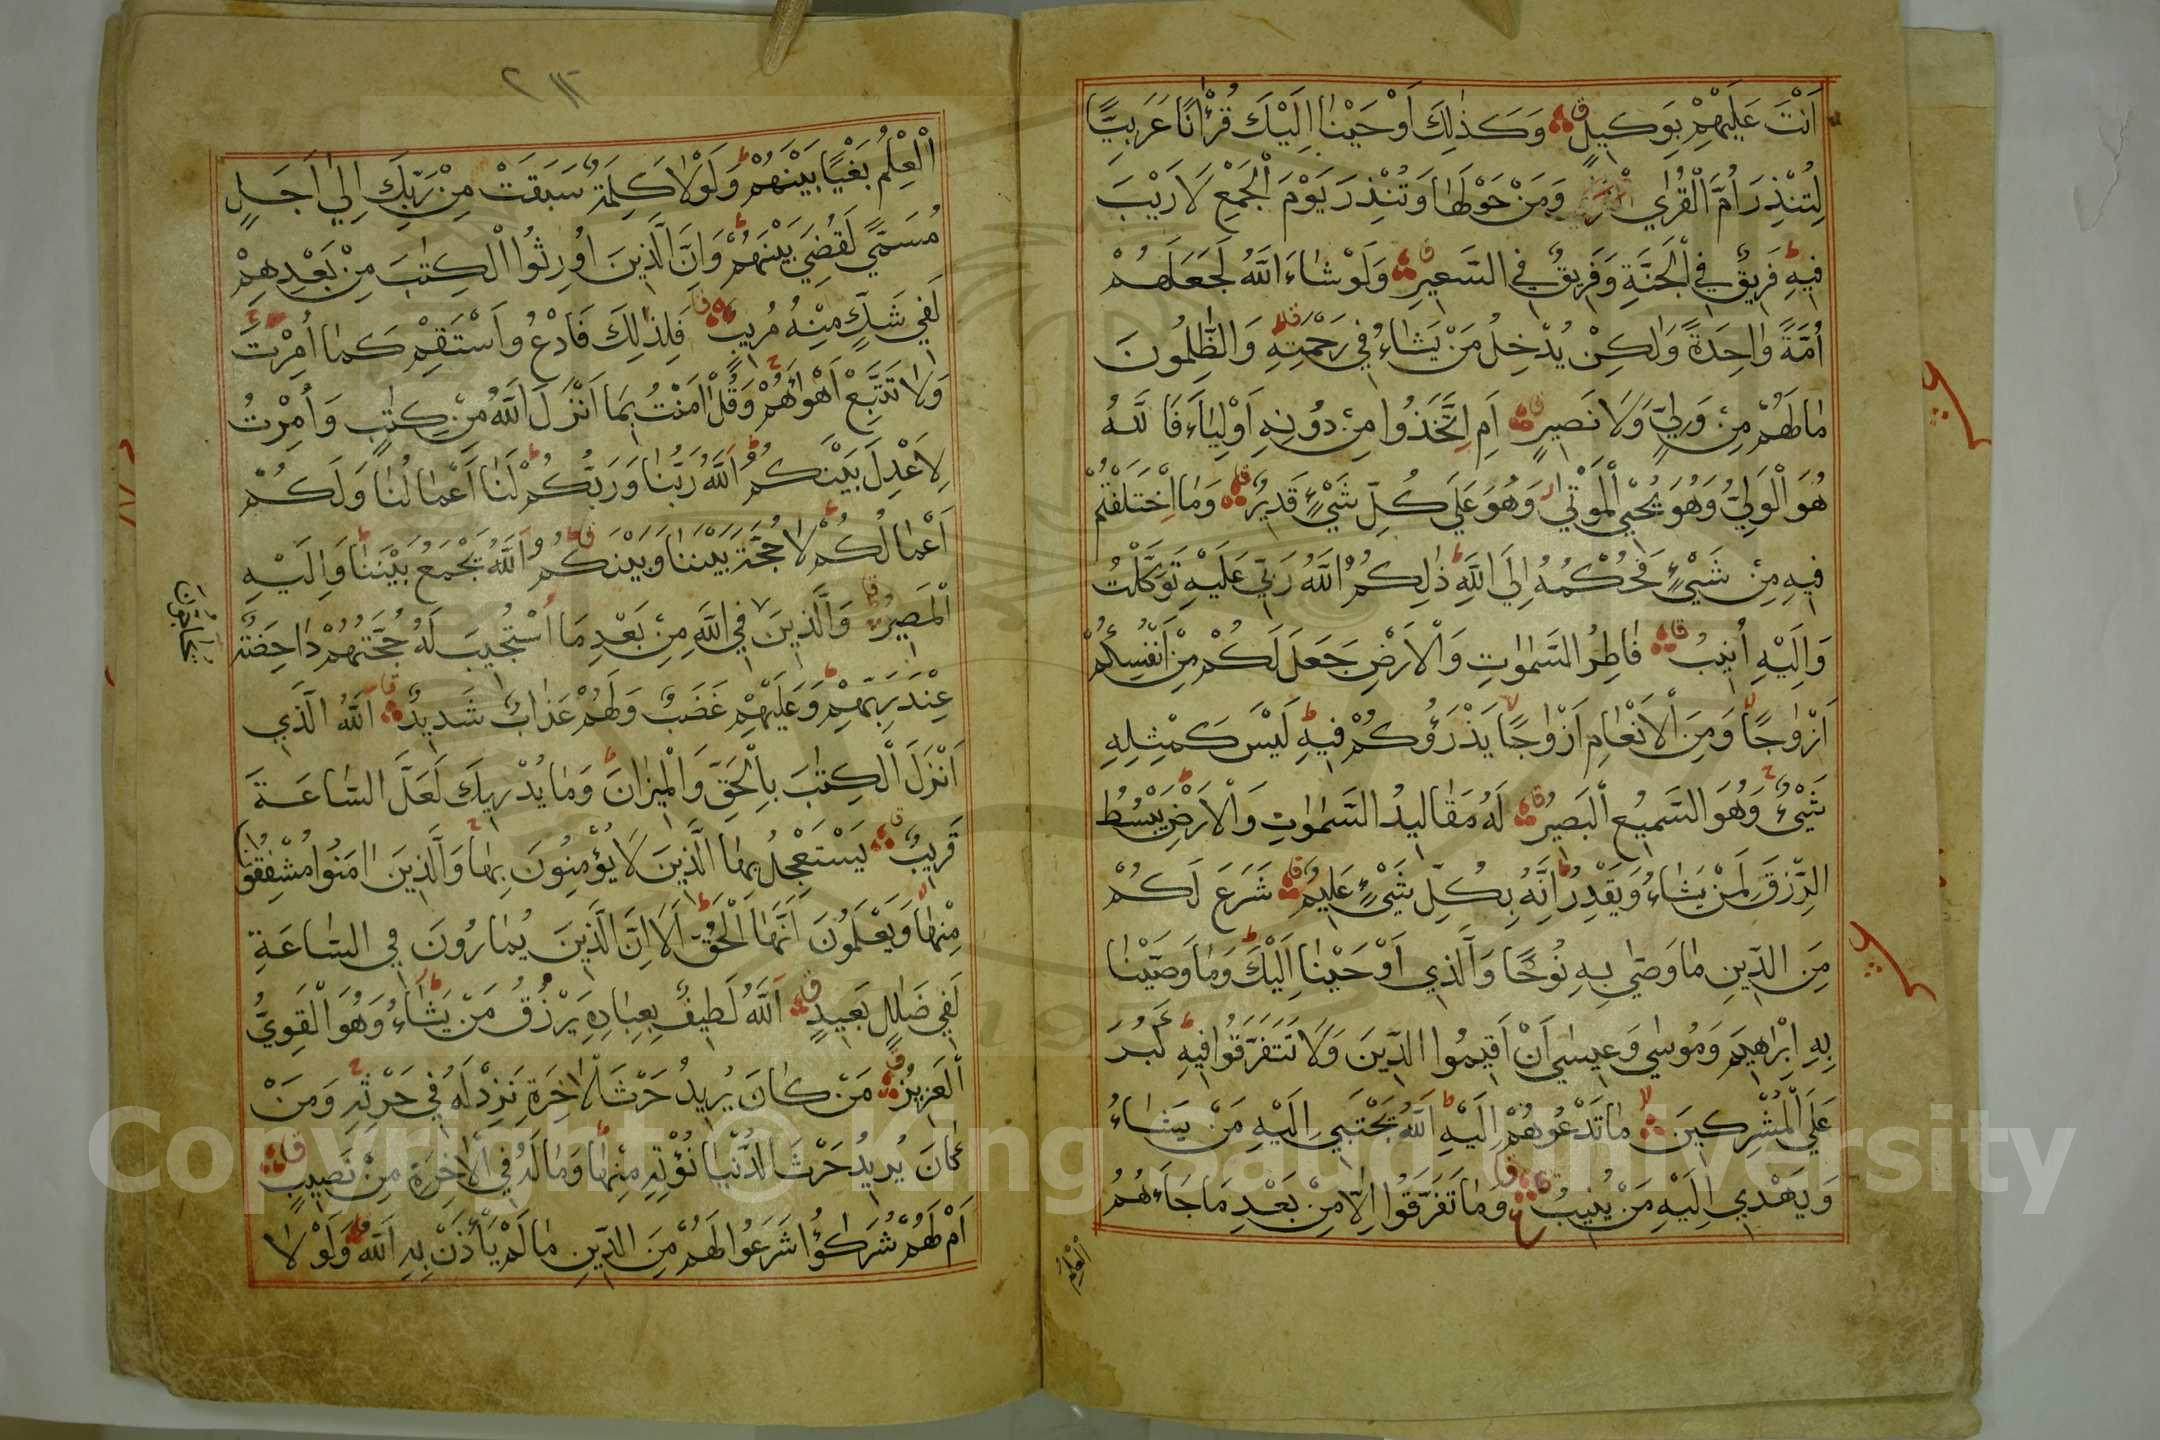 اَنْتَ عَلَيْهِمْ بِوَكيلٍ وَكَذٰلِكَ اَوْحَيْنٰا اِلَيْكَ قُرْاٰنًا عَرَبِيًّا
لِتُنْذِرَ اُمَّ الْقُرٰي وَمَنْ حَوْلَهٰا وَتُنْذِرَ يَوْمَ الْجَمْعِ لَا رَيْبَ
فيهِ فَريقٌ فِي الْجَنَّةِ وَفَريقٌ فِي السَّعيرِ وَلَوْ شٰاءَ اللَّهُ لَجَعَلَهُمْ
اُمَّةً وٰاحِدَةً وَلٰكِنْ يُدْخِلُ مَنْ يَشٰاءُ في رَحْمَتِهِ وَالظّٰلِمُونَ
مٰا لَهُمْ مِنْ وَلِيٍّ وَلَا نَصيرٍ اَمِ اتَّخَذُوا مِنْ دُونِهِ اَوْلِيٰاءَ فَاللَّهُ
هُوَ الْوَلِيُّ وَهُوَ يُحْيِي الْمَوْتٰي وَهُوَ عَلٰي كُلِّ شَيْءٍ قَديرٌ وَمَا اخْتَلَفْتُمْ
فيهِ مِنْ شَيْءٍ فَحُكْمُهُ اِلَي اللَّهِ ذٰلِكُمُ اللَّهُ رَبّي عَلَيْهِ تَوَكَّلْتُ
وَاِلَيْهِ اُنيبُ فٰاطِرُ السَّمٰوٰتِ وَالْاَرْضِ جَعَلَ لَكُمْ مِنْ اَنْفُسِكُمْ
اَزْوٰجًا وَمِنَ الْاَنْعٰامِ اَزْوٰجًا يَذْرَؤُكُمْ فيهِ لَيْسَ كَمِثْلِهِ
شَيْءٌ وَهُوَ السَّميعُ الْبَصيرُ لَهُ مَقٰاليدُ السَّمٰوٰتِ وَالْاَرْضِ يَبْسُطُ
الرِّزْقَ لِمَنْ يَشٰاءُ وَيَقْدِرُ اِنَّهُ بِكُلِّ شَيْءٍ عَليمٌ شَرَعَ لَكُمْ
مِنَ الدّينِ مٰا وَصّٰي بِهِ نُوحًا وَالَّذي اَوْحَيْنٰا اِلَيْكَ وَمٰا وَصَّيْنٰا
بِهِ اِبْرٰهيمَ وَمُوسٰي وَعيسٰي اَنْ اَقيمُوا الدّينَ وَلَا تَتَفَرَّقُوا فيهِ كَبُرَ
عَلَي الْمُشْرِكينَ مٰا تَدْعُوهُمْ اِلَيْهِ اَللَّهُ يَجْتَبي اِلَيْهِ مَنْ يَشٰاءُ
وَيَهْدي اِلَيْهِ مَنْ يُنيبُ وَمٰا تَفَرَّقُوا اِلّٰا مِنْ بَعْدِ مَا جَاءَهُمُ
الْعِلْمُ
الْعِلْمُ بَغْيًا بَيْنَهُمْ وَلَوْلٰا كَلِمَةٌ سَبَقَتْ مِنْ رَبِّكَ اِلٰي اَجَلٍ
مُسَمًّي لَقُضِيَ بَيْنَهُمْ وَاِنَّ الَّذينَ اُورِثُوا الْكِتٰبَ مِنْ بَعْدِهِمْ
لَفي شَكٍّ مِنْهُ مُريبٍ فَلِذٰلِكَ فَادْعُ وَاسْتَقِمْ كَمٰا اُمِرْتَ
وَلٰا تَتَّبِعْ اَهْوٰاءَهُمْ وَقُلْ اٰمَنْتُ بِمٰا اَنْزَلَ اللَّهُ مِنْ كِتٰبٍ وَاُمِرْتُ
لِاَعْدِلَ بَيْنَكُمُ اَللَّهُ رَبُّنٰا وَرَبُّكُمْ لَنٰا اَعْمٰالُنٰا وَلَكُمْ
اَعْمٰالُكُمْ لٰا حُجَّةَ بَيْنَنٰا وَبَيْنَكُمُ اَللَّهُ يَجْمَعُ بَيْنَنٰا وَاِلَيْهِ
الْمَصيرُ وَالَّذينَ فِي اللَّهِ مِنْ بَعْدِ مَا اسْتُجيبَ لَهُ حُجَّتُهُمْ دٰاحِضَةٌ
يُحٰاجُّونَ
عِنْدَ رَبِّهِمْ وَعَلَيْهِمْ غَضَبٌ وَلَهُمْ عَذٰابٌ شَديدٌ اَللَّهُ الَّذي
اَنْزَلَ الْكِتٰبَ بِالْحَقِّ وَالْميزٰانَ وَمٰا يُدْريكَ لَعَلَّ السّٰاعَةَ
قَريبٌ يَسْتَعْجِلُ بِهَا الَّذينَ لَا يُؤْمِنُونَ بِهٰا وَالَّذينَ اٰمَنُوا مُشْفِقُونَ
مِنْهٰا وَيَعْلَمُونَ اَنَّهَا الْحَقُّ اَلَا اِنَّ الَّذينَ يُمٰارُونَ فِي السّٰاعَةِ
لَفي ضَلٰلٍ بَعيدٍ اَللَّهُ لَطيفٌ بِعِبٰادِهِ يَرْزُقُ مَنْ يَشٰاءُ وَهُوَ الْقَوِيُّ
الْعَزيزُ مَنْ كٰانَ يُريدُ حَرْثَ الْاٰخِرَةِ نَزِدْ لَهُ في حَرْثِهِ وَمَنْ
كٰانَ يُريدُ حَرْثَ الدُّنْيٰا نُؤْتِهِ مِنْهٰا وَمٰا لَهُ فِي الْاٰخِرَةِ مِنْ نَصيبٍ
اَمْ لَهُمْ شُرَكٰؤُا شَرَعُوا لَهُمْ مِنَ الدّينِ مٰا لَمْ يَأْذَنْ بِهِ اللَّهُ وَلَوْلٰا
Copyright © King Saud University